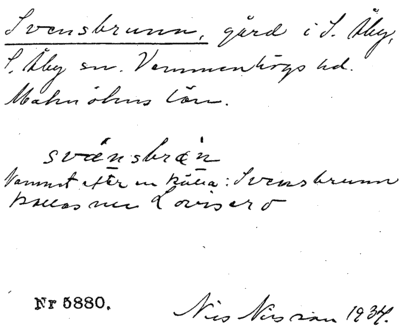 Svensbrunn, gård i S. Åby,
S. Åby sn. Vemmenhögs hd.
Malmöhus län.
svänsbrøn
Namnet efter en källa: Svensbrunn
kallas nu Lovisero
Nr 5880. Nils Nilsson 1934.